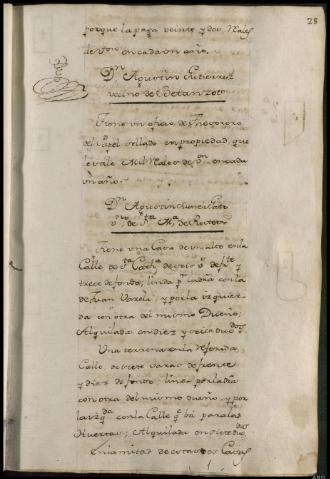 28
porque la paga veinte y dos Reales
de Vn. en cada un año.
Dn. Agustin Gutierrez
vecino de Betanzos
Tiene un oficio de Thesorero
del Papel sellado en propiedad, que
le vale Mil Reales de Vn. en cada
un año.
Dn. Agustin
de Sta. Ma. de
Tiene una Casa de un alto en la
Calle de Sta. Cath.a de seis vs. de fte. y
trece de fondo; linda pr. la dra. con la
de Juan Varela, y por la izquier
da con otra del mismo Dueño;
Alquilada en diez y seis ducados
Una terrena en la referida
Calle, de siete varas de frente
y diez de fondo; linda por la dra.
con otra del mismo dueño, y por
la izqa. con la Calle qe. bá para las
Huertas; Alquilada en siete dos.
En la mitad de cotas dos Casas